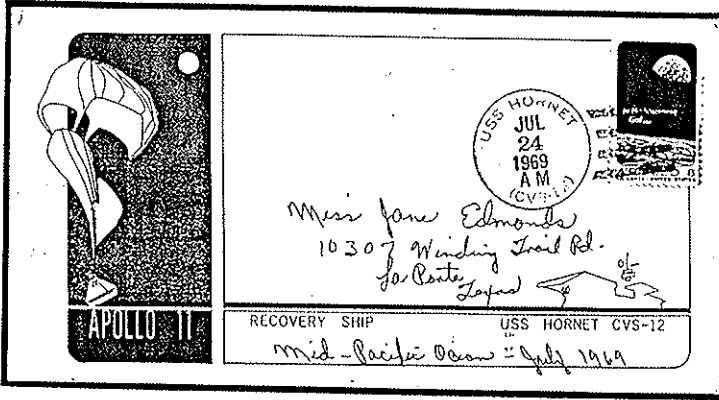 USS HORNET
JUL
24
1969
AM
(CVS-12)
Miss Jane Edmonds
10307 Winding Trail Rd.
La Porte,
Texas
APOLLO 11
RECOVERY SHIP USS HORNET CVS-12
Mid-Pacific Ocean - July 1969